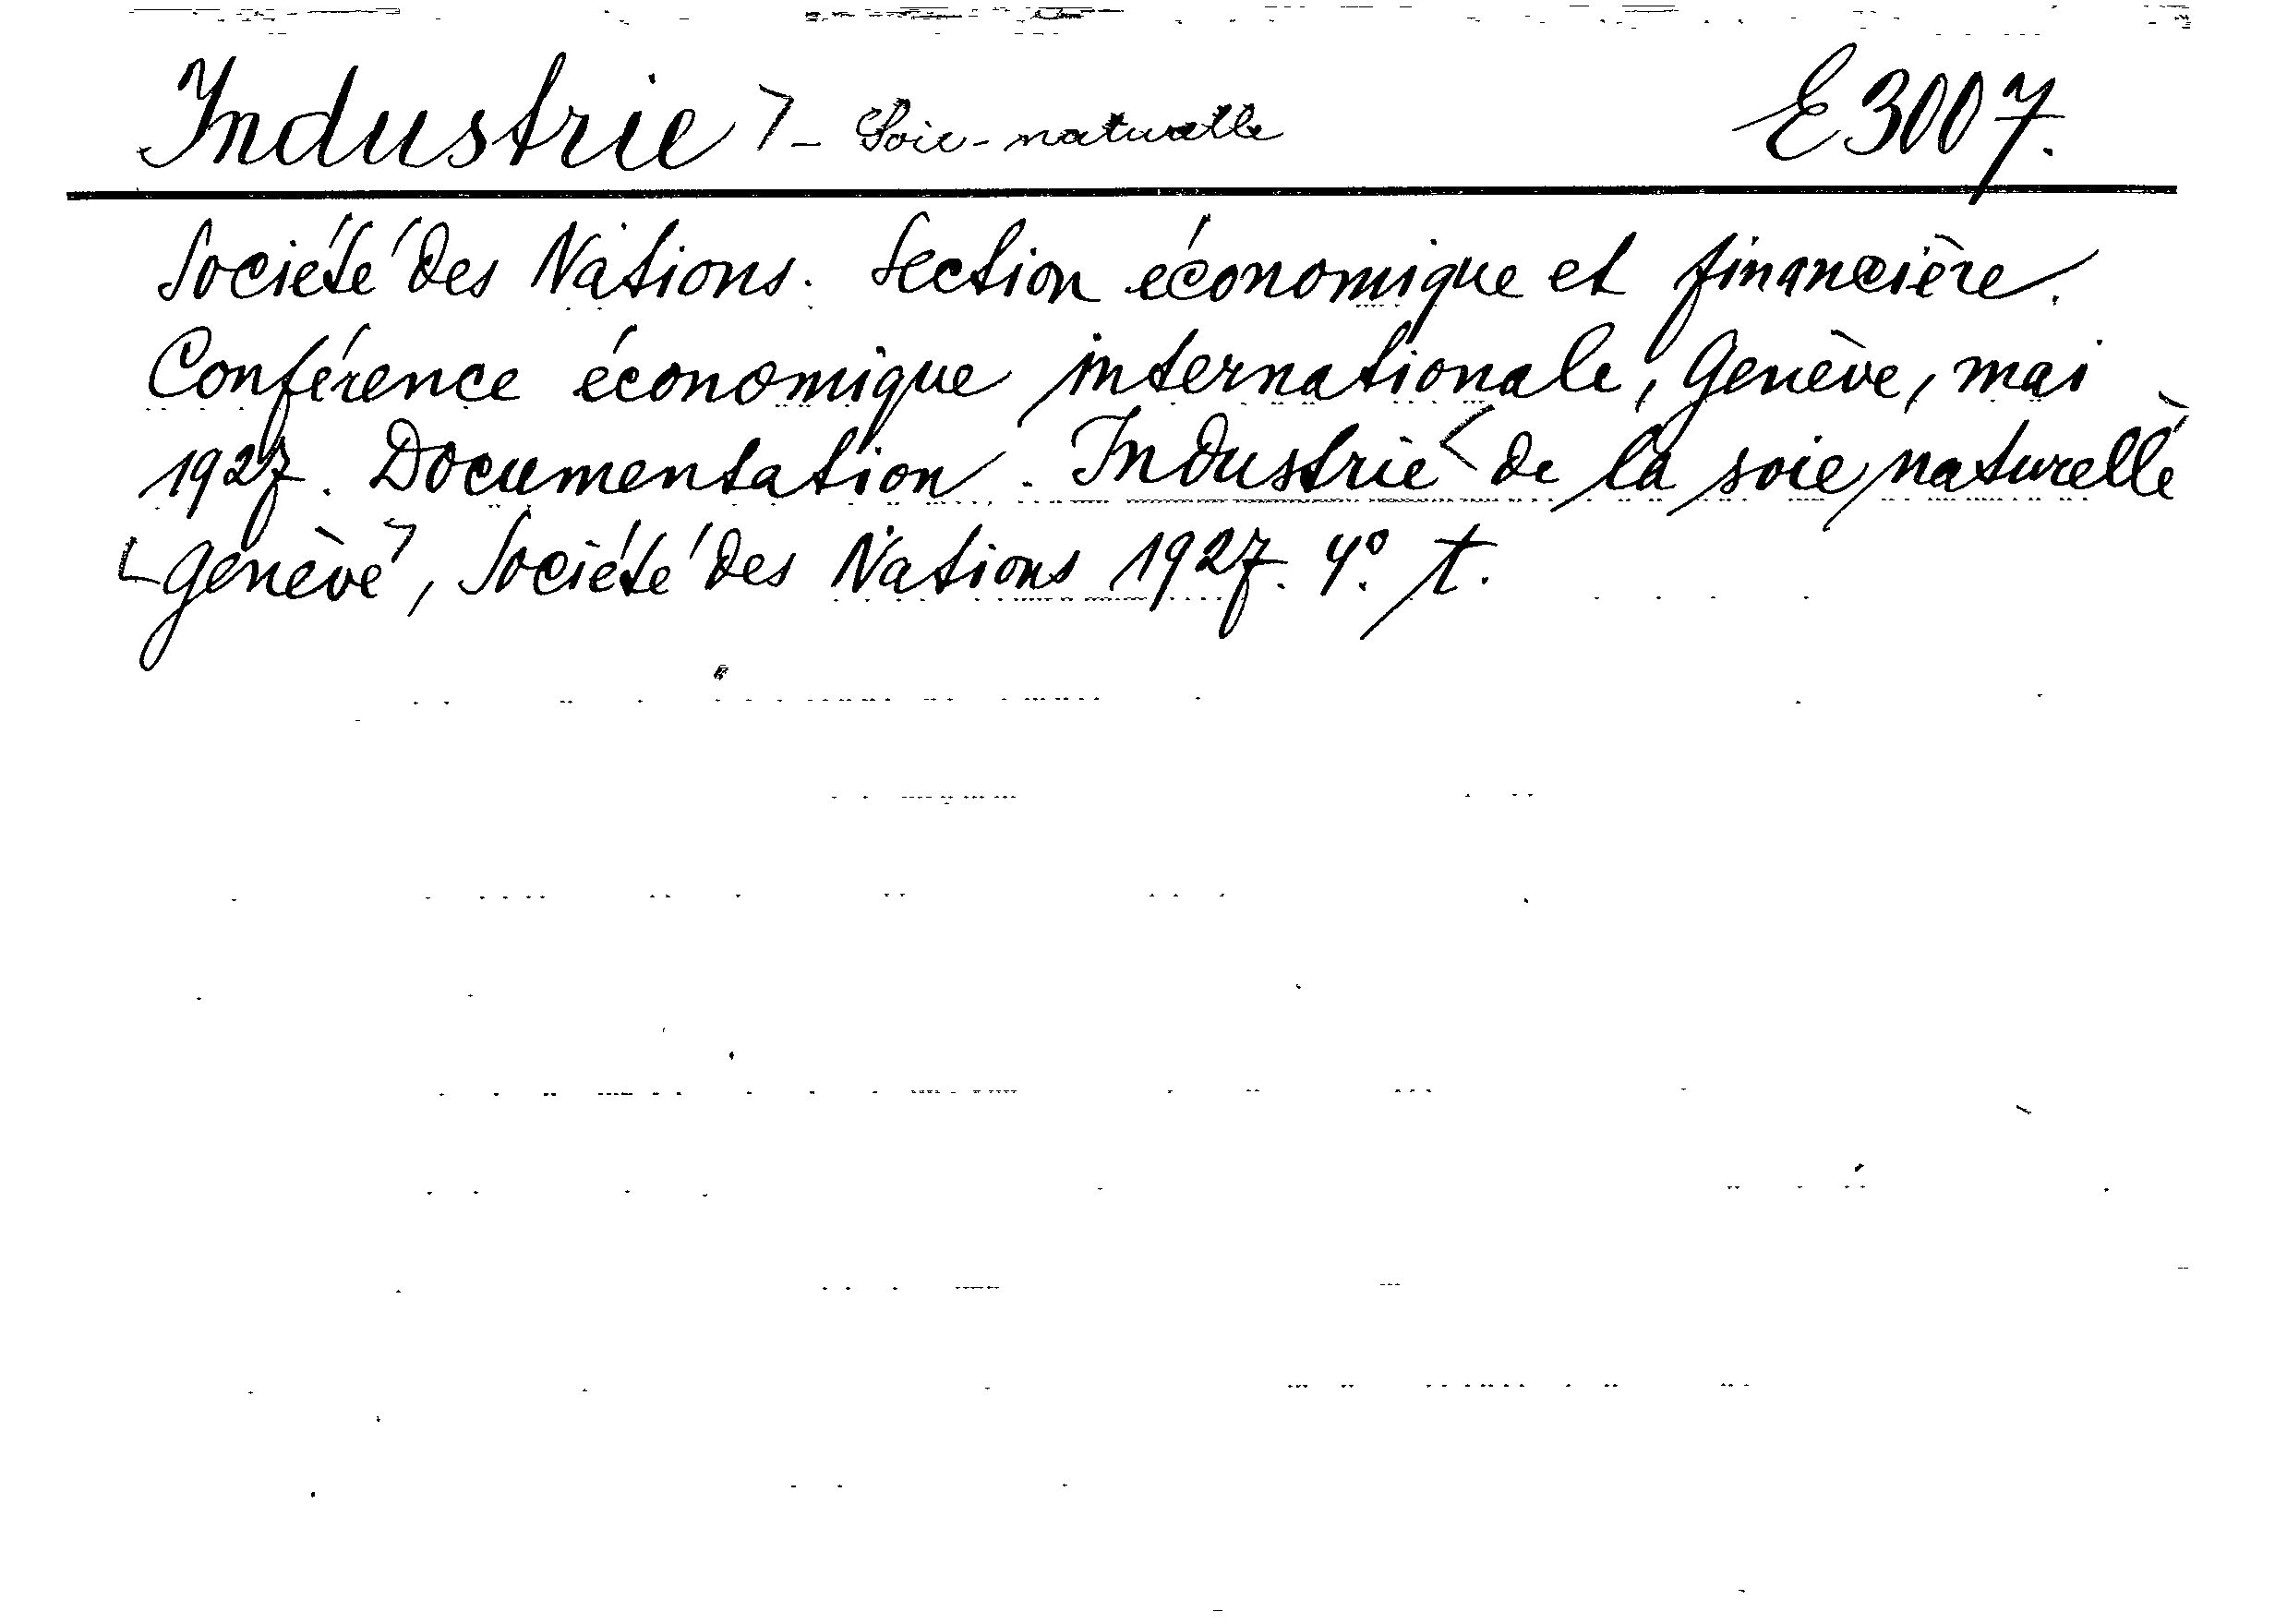 Industrie - Soie-naturelle E3007.
Société des Nations. Section économique et financière.
Conférence économique internationale, Genève, mai
1927. Documentation. Industrie de la soie naturelle
Genève, Société des Nations 1927. 4°. T.